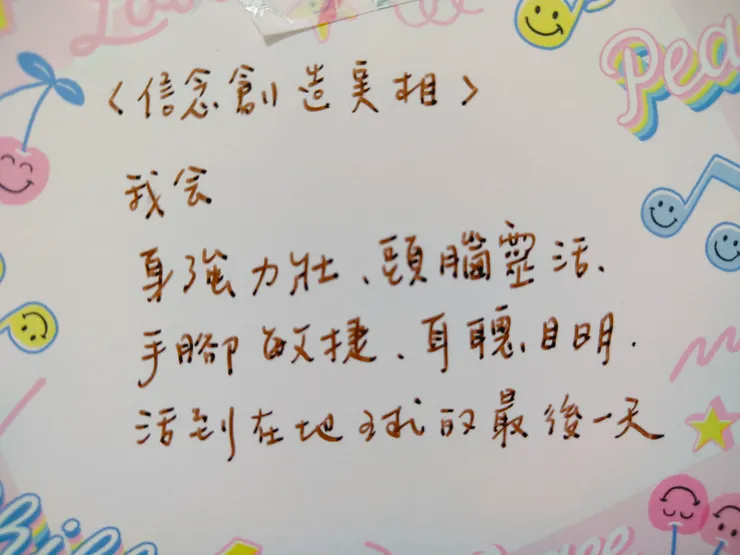 Love
Peace
〈信念創造実相〉
我会
身強力壯、頭腦靈活、
手腳敏捷、耳聰目明.
活到在地球的最後一天